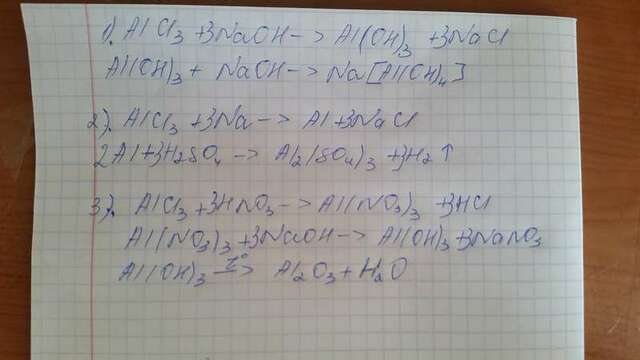 1). AlCl3 + 3NaOH -> Al(OH)3 + 3NaCl
Al(OH)3 + NaOH -> Na[Al(OH)4]
2). AlCl3 + 3Na -> Al + 3NaCl
2Al + 3H2SO4 -> Al2(SO4)3 + 3H2↑
3). AlCl3 + 3HNO3 -> Al(NO3)3 + 3HCl
Al(NO3)3 + 3NaOH -> Al(OH)3 + 3NaNO3
Al(OH)3 t° -> Al2O3 + H2O